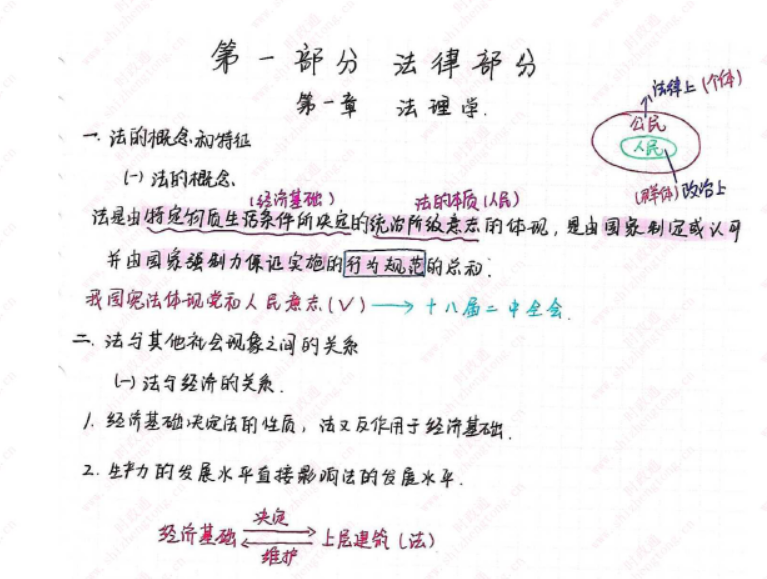 第一部分 法律部分
第一章 法理学.
法律上(个体)
公民
人民
(群体)政治上
一. 法的概念和特征
(一) 法的概念.
(经济基础) 法的本质(人民)
法是由特定物质生活条件所决定的统治阶级意志的体现, 是由国家制定或认可
并由国家强制力保证实施的行为规范的总和.
我国宪法体现党和人民意志(√) → 十八届二中全会.
二. 法与其他社会现象之间的关系
(一) 法与经济的关系.
1. 经济基础决定法的性质, 法又反作用于经济基础.
2. 生产力的发展水平直接影响法的发展水平.
决定
经济基础 ⇄ 上层建筑(法)
维护
时政通
www.shizhengtong.cn